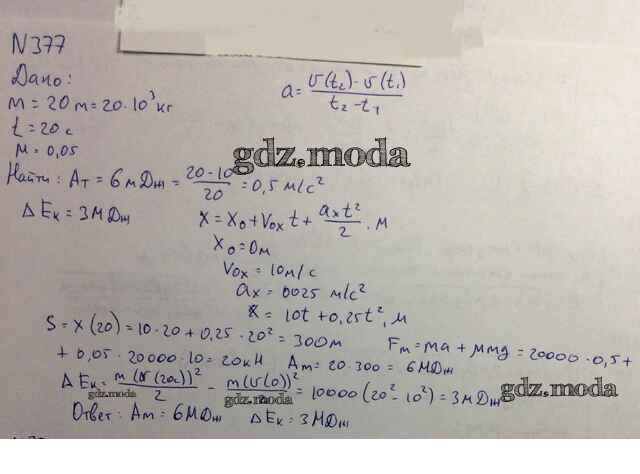 N377
Дано:
m = 20 т = 20·10³ кг
t = 20 с
м = 0,05
a = υ(t₂) - υ(t₁) / t₂ - t₁
gdz.moda
Найти: Aт = 6 мДж = 20-10 / 20 = 0,5 м/с²
ΔEк = 3 МДж
x = x₀ + V₀ₓ t + aₓt² / 2 . м
x₀ = 0м
V₀ₓ = 10 м/с
aₓ = 0025 м/с²
x = 10t + 0,25t², м
S = x (20) = 10·20 + 0,25·20² = 300м
Fм = ma + μmg = 20000·0,5 +
+ 0,05·20000·10 = 20кН Aм = 20·300 = 6МДж
ΔEк = m(υ(20))² / 2 - m(υ(0))² / 2 = 10000(20² - 10²) = 3мДж
gdz.moda
gdz.moda
gdz.moda
Ответ: Aм = 6МДж ΔEк = 3МДж